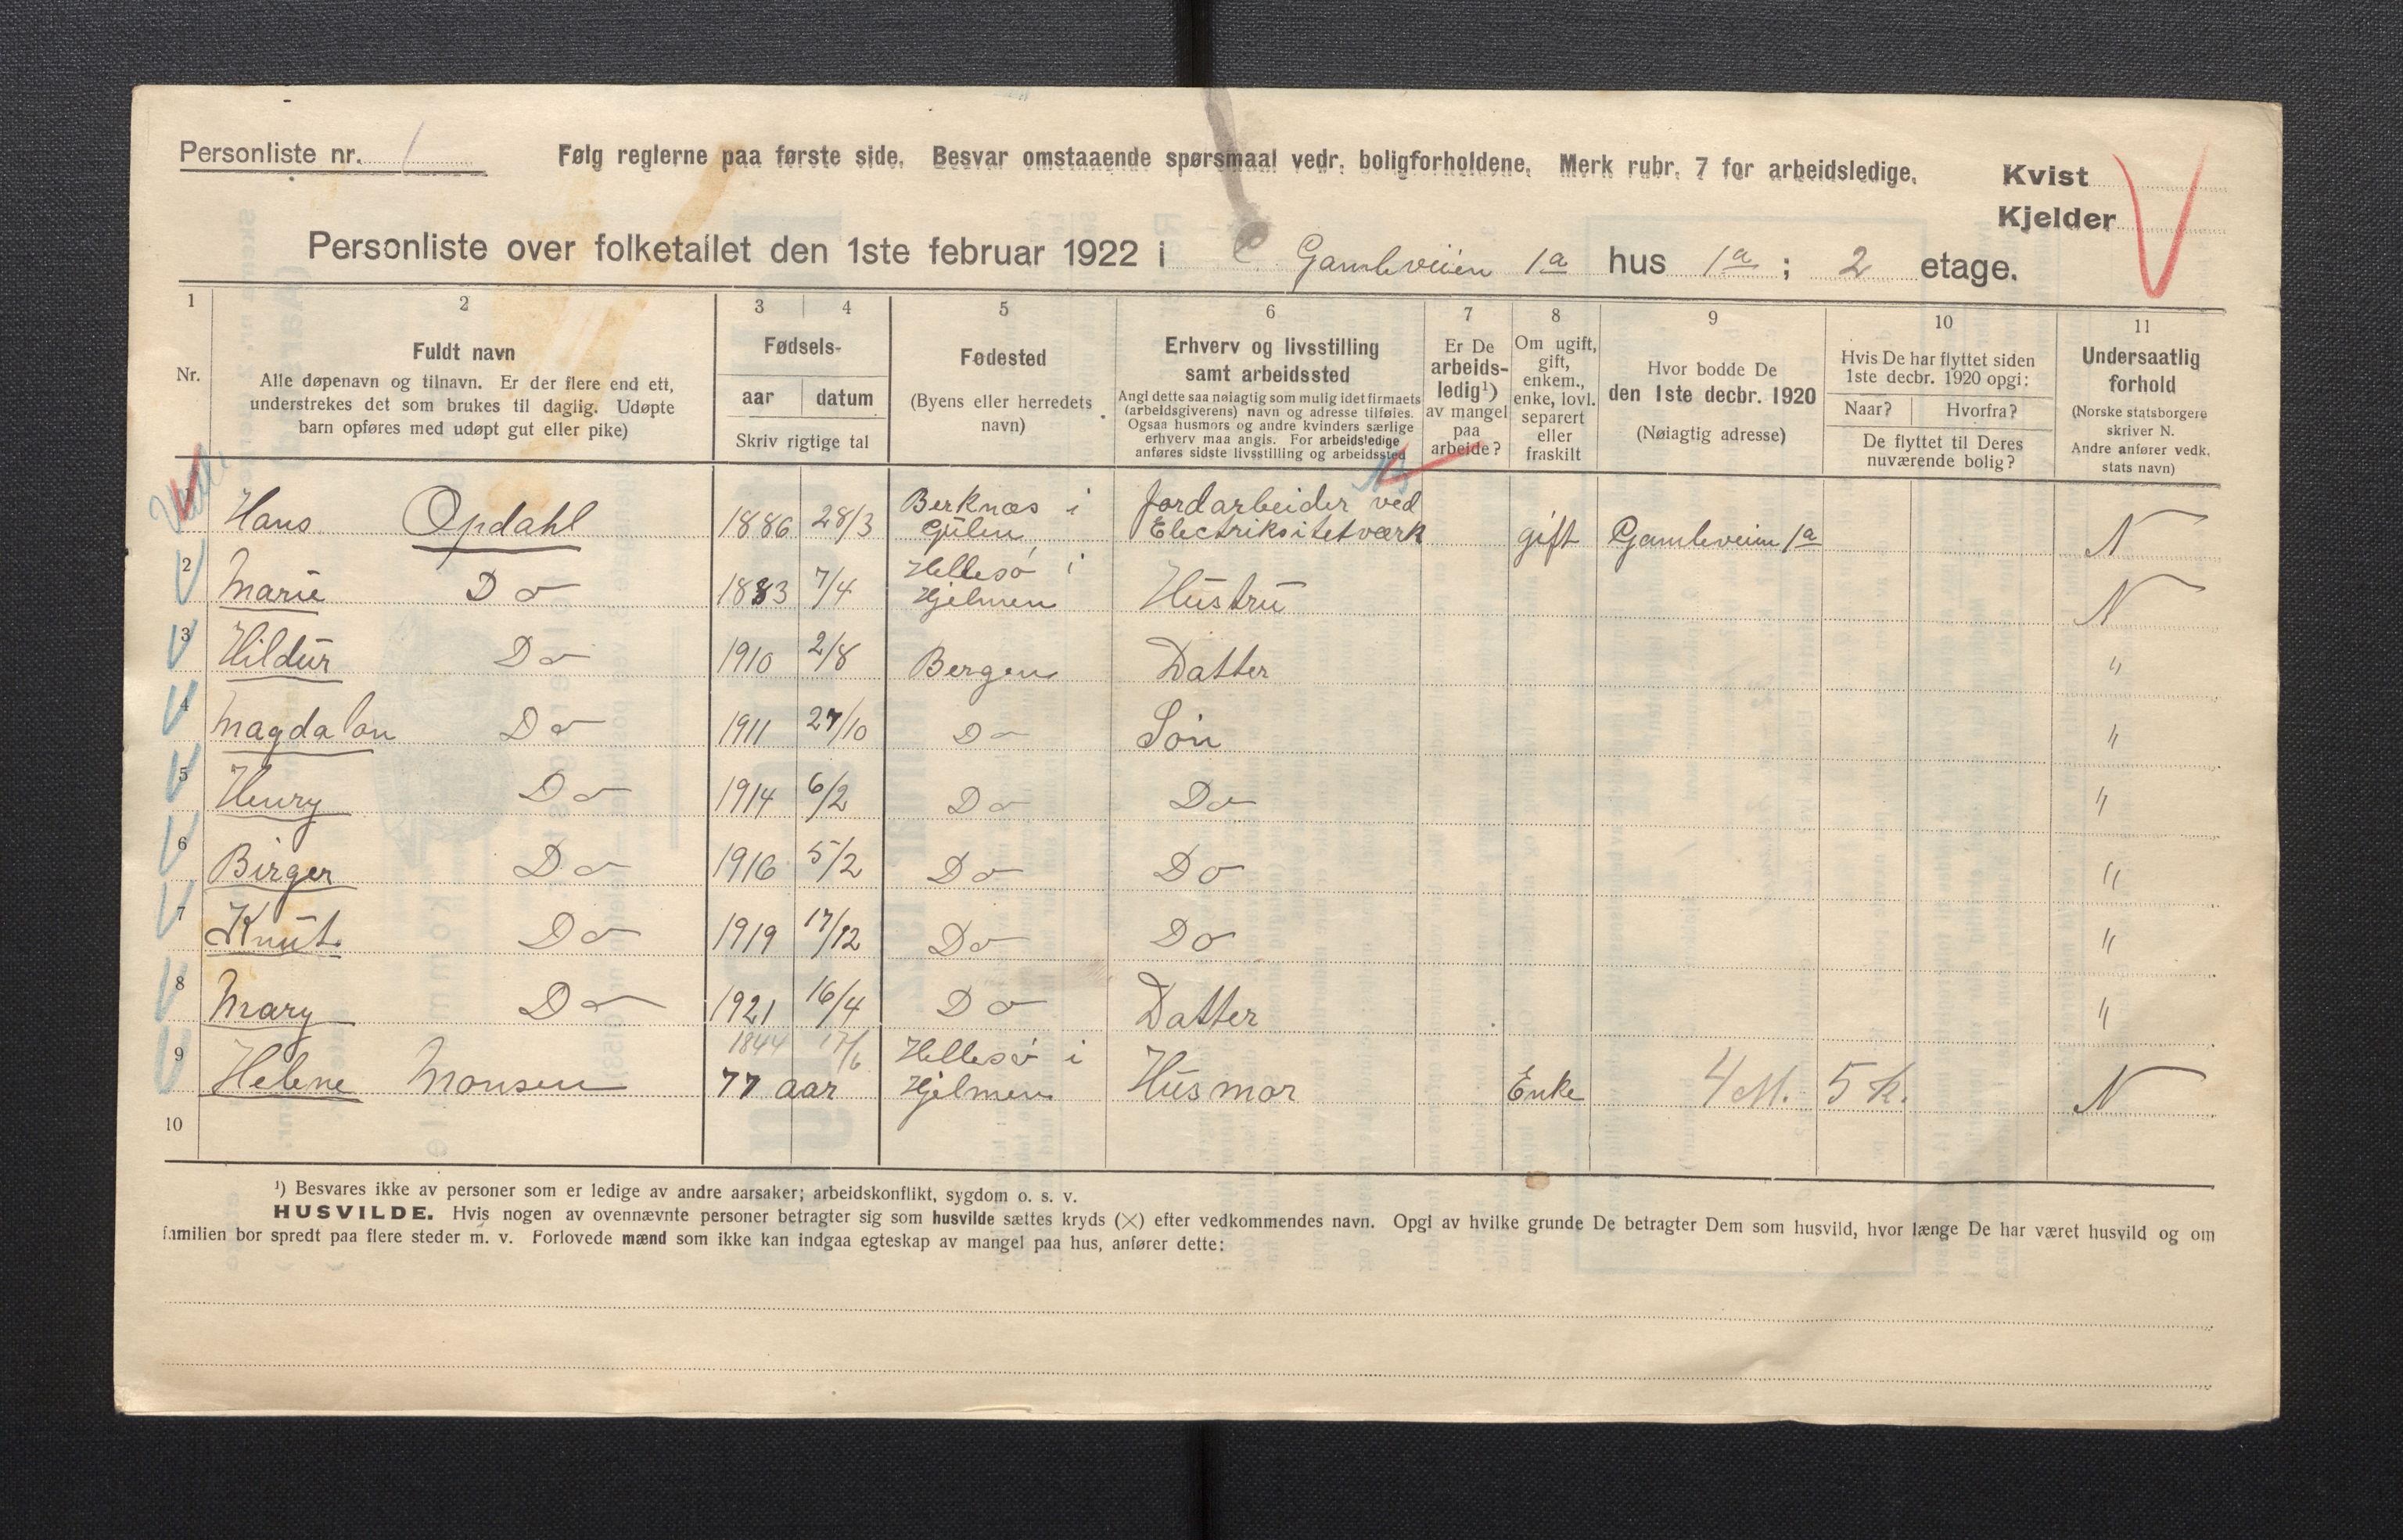 Personliste nr. 1
Følg reglerne paa første side. Besvar omstaaende spørsmaal vedr. boligforholdene. Merk rubr. 7 for arbeidsledige.
Kvist
Kjelder
Personliste over folketallet den 1ste februar 1922 i Gamleveien 1a hus 1a ; 2 etage.
1 2 3 4 5 6 7 8 9 10 11
Nr.
Fuldt navn
Alle døpenavn og tilnavn. Er der flere end ett,
understrekes det som brukes til daglig. Udøpte
barn opføres med udøpt gut eller pike)
Fødsels-
aar datum
Skriv rigtige tal
Fødested
(Byens eller herredets
navn)
Erhverv og livsstilling
samt arbeidssted
Angi dette saa nøiagtig som mulig idet firmaets
(arbeidsgiverens) navn og adresse tilføies.
Ogsaa husmors og andre kvinders særlige
erhverv maa angis. For arbeidsledige
anføres sidste livsstilling og arbeidssted
Er De
arbeids-
ledig¹)
av mangel
paa
arbeide?
Om ugift,
gift,
enkem.,
enke, lovl.
separert
eller
fraskilt
Hvor bodde De
den 1ste decbr. 1920
(Nøiagtig adresse)
Hvis De har flyttet siden
1ste decbr. 1920 opgi:
Naar? Hvorfra?
De flyttet til Deres
nuværende bolig?
Undersaatlig
forhold
(Norske statsborgere
skriver N.
Andre anfører vedk.
stats navn)
Hans Opdahl 1886 28/3 Berknæs i Gulen Jordarbeider ved Electriksitetværk gift Gamleveien 1a N
2 Marie Do 1883 7/4 Hellesö i Hjelmen Hustru N
3 Hildur Do 1910 2/8 Bergen Datter "
4 Magdalon Do 1911 27/10 Do Sön "
5 Henry Do 1914 6/2 Do Do "
6 Birger Do 1916 5/2 Do Do "
7 Knut Do 1919 17/12 Do Do "
8 Mary Do 1921 16/4 Do Datter "
1844 17/6
9 Helene Monsen 77 aar Hellesö i Hjelmen Husmor Enke 4 M. 5 K. N
10
¹) Besvares ikke av personer som er ledige av andre aarsaker; arbeidskonflikt, sygdom o. s. v.
HUSVILDE. Hvis nogen av ovennævnte personer betragter sig som husvilde sættes kryds (×) efter vedkommendes navn. Opgi av hvilke grunde De betragter Dem som husvild, hvor længe De har været husvild og om
familien bor spredt paa flere steder m. v. Forlovede mænd som ikke kan indgaa egteskap av mangel paa hus, anfører dette: